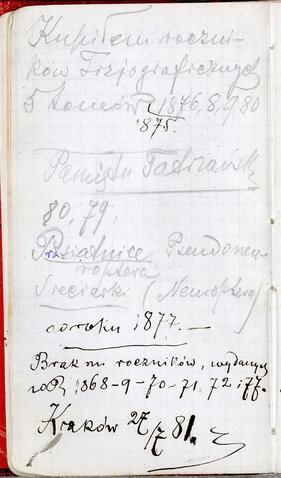 Kupiłem roczni-
ków Fizjograficznych
5 tomów 1876,8,9,80
1875.
Pamiętn Tatrzańsk
80, 79,
Psiatnice Pseudoneu-
roptera
Sieciarki (Neuroptera)
do roku 1877.—
Brak mi roczników, wydanych
1868-9-70-71, 72 i 77.
Kraków 27/7 81.